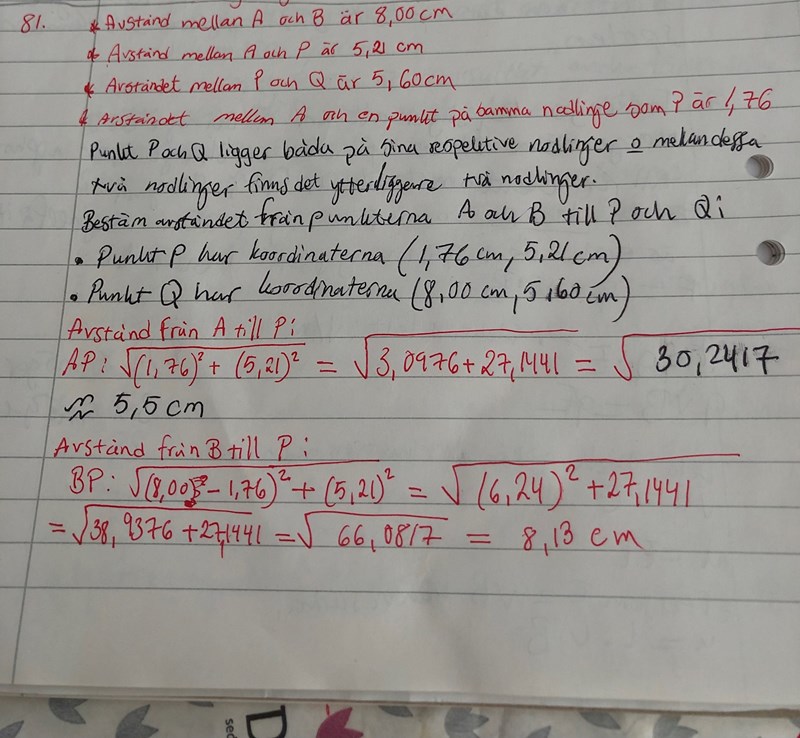 81. * Avstånd mellan A och B är 8,00 cm
* Avstånd mellan A och P är 5,21 cm
* Avståndet mellan P och Q är 5,60 cm
* Avståndet mellan A och en punkt på samma nodlinje som P är 1,76
Punkt P och Q ligger båda på sina respektive nodlinjer o mellan dessa
två nodlinjer finns det ytterliggare två nodlinjer.
Bestäm avståndet från punkterna A och B till P och Q:
• Punkt P har koordinaterna (1,76 cm, 5,21 cm)
• Punkt Q har koordinaterna (8,00 cm, 5,60 cm)
Avstånd från A till P:
AP: √(1,76)² + (5,21)² = √3,0976 + 27,1441 = √30,2417
≈ 5,5 cm
Avstånd från B till P:
BP: √(8,00 - 1,76)² + (5,21)² = √(6,24)² + 27,1441
= √38,9376 + 27,1441 = √66,0817 = 8,13 cm
D
sec